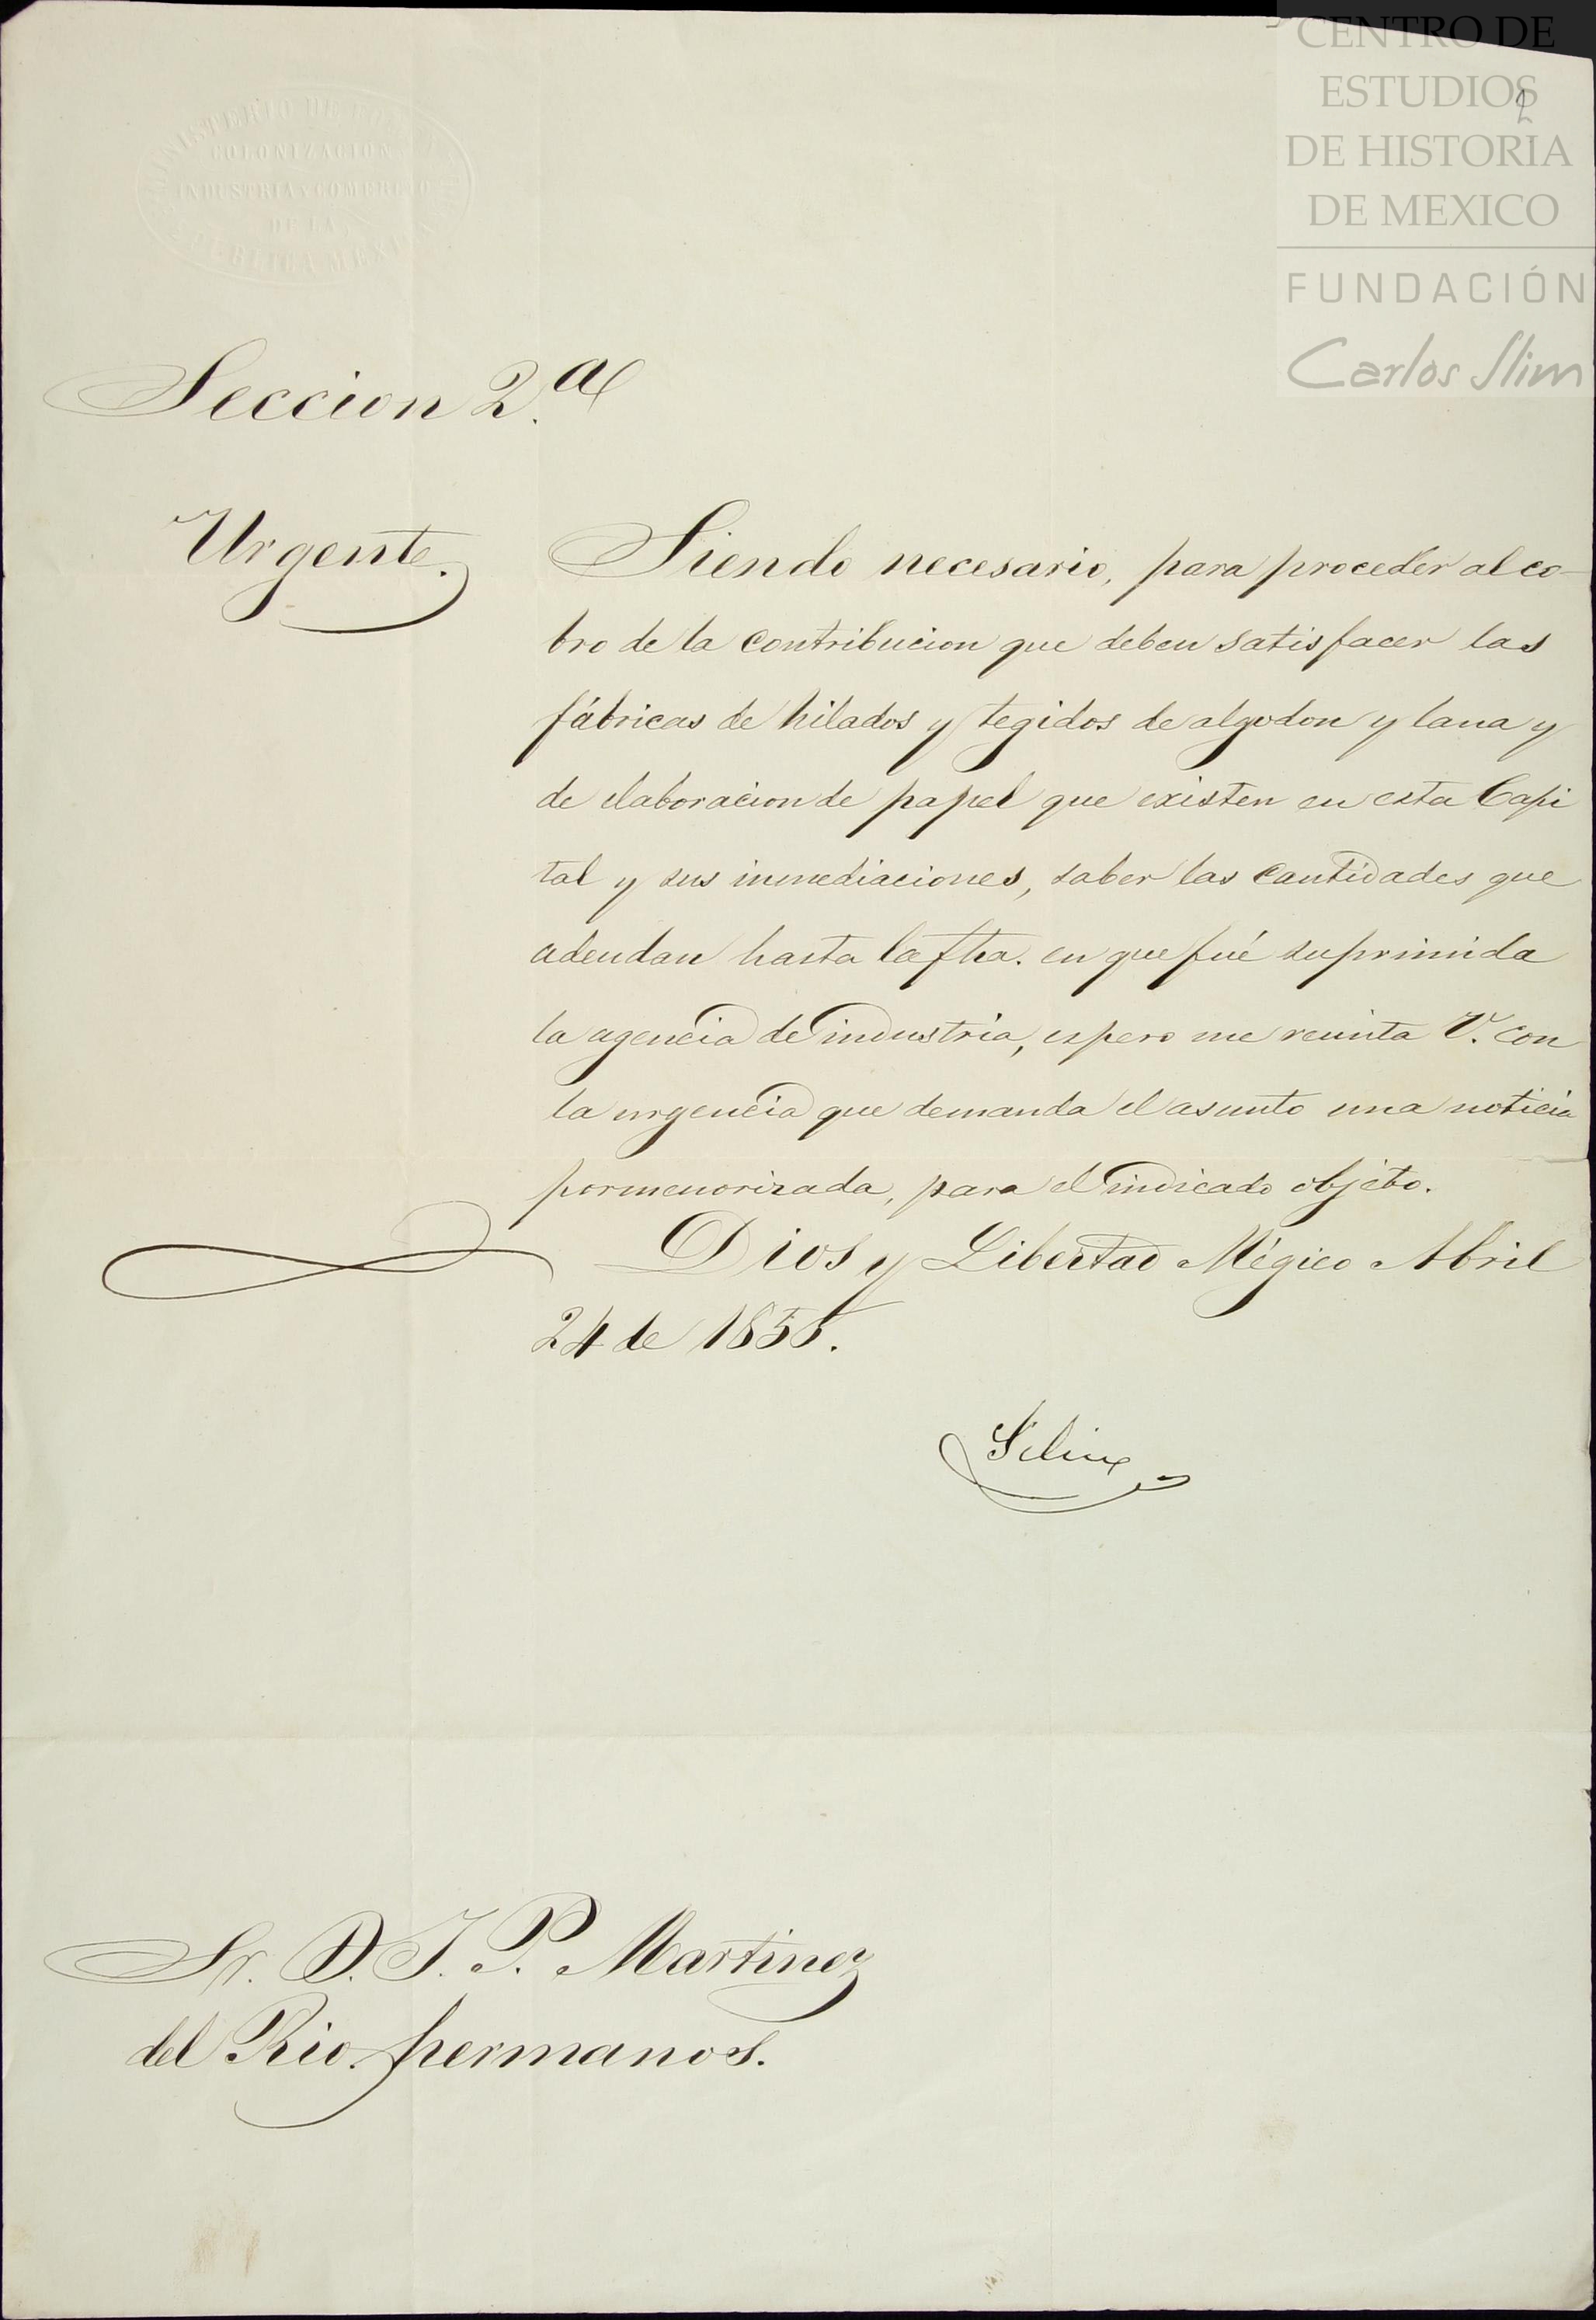 CENTRO DE
ESTUDIOS
DE HISTORIA
DE MEXICO
FUNDACIÓN
Carlos Slim
MINISTERIO DE
COLONIZACION
INDUSTRIA Y COMERCIO
DE LA
REPUBLICA MEXI
Seccion 2.a
Urgente.
Siendo necesario, para proceder al co-
bro de la contribucion que deben satisfacer las
fábricas de hilados y tegidos de algodon y lana y
de elaboracion de papel que existen en esta Capi
tal y sus inmediaciones, saber las cantidades que
adeudan hasta la fha. en que fué suprimida
la agencia de industria, espero me remita V. con
la urgencia que demanda el asunto una noticia
pormenorizada, para el indicado objeto.
Dios y Libertad Mégico Abril
24 de 1855.
Siliceo
Sr. D. J. P. Martinez
del Rio hermanos.